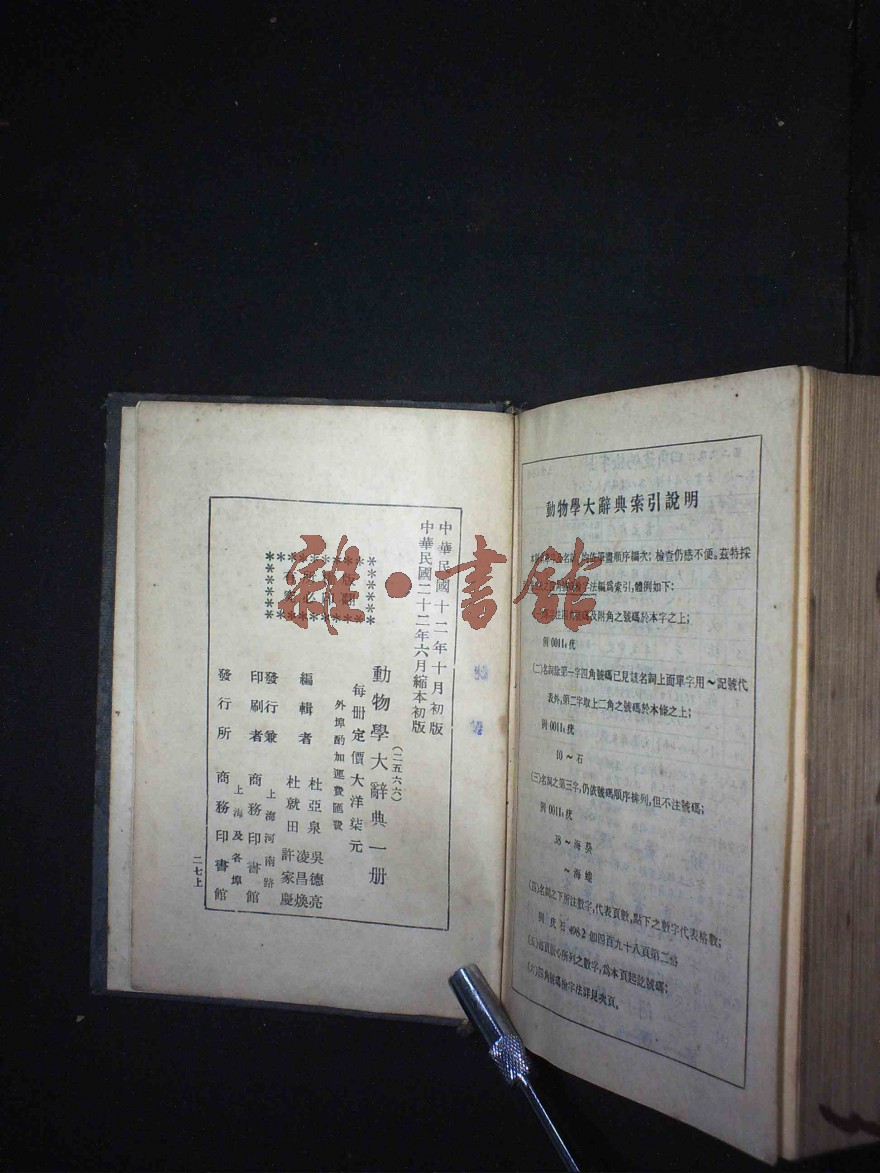 中華民國十二年十月初版
中華民國二十二年六月縮本初版
(二五六六)
動物學大辭典一册
每册定價大洋柒元
外埠酌加運費匯費
編輯者 杜亞泉 吳德亮
杜就田 凌昌煥
許家慶
發行兼印刷者 上海河南路
商務印書館
發行所 上海及各埠
商務印書館
二七上
動物學大辭典索引說明
順序編次;檢查仍感不便。茲特採
字法編爲索引,體例如下:
號碼及附角之號碼於本字之上;
例 0011₄ 疣
(二)名詞除第一字四角號碼已見該名詞上面單字用～記號代
表外,第二字取上二角之號碼於本條之上;
例 0011₄ 疣
10 ～石
(三)名詞之第三字,仍依號碼順序排列,但不注號碼;
例 0011₄ 疣
38 ～海葵
～海蛞
(四)名詞之下所注數字,代表頁數,點下之數字代表格數;
498.2 卽四百九十八頁第二格
(五)每頁版心所列之數字,爲本頁起訖號碼;
(六)四角號碼檢字法詳見次頁。
雜·書館